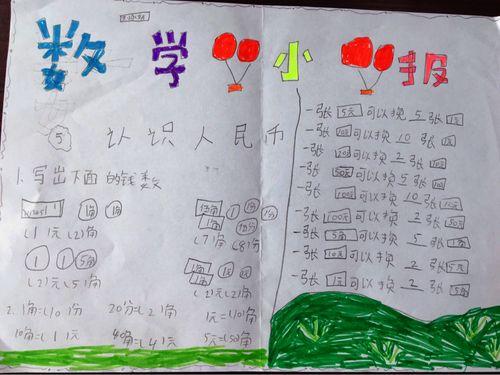 数学小报
⑤ 认识人民币
1. 写出下面的钱数
1角 1角
(1)元(2)角
1 1 5角
(2)元(5)角
(7)角(8)角
1角 1元 1元
(2)元(2)角
2. 1角=(10)分 20分=(2)角 1元=(10)角
10角=(1)元 40角=(4)元 5元=(50)角
一张 5元 可以换 5 张 1元
一张 10元 可以换 10 张 1元
一张 20元 可以换 2 张 10元
一张 50元 可以换 5 张 10元
一张 100元 可以换 10 张 10元
一张 100元 可以换 2 张 50元
一张 5角 可以换 5 张 1角
一张 10元 可以换 2 张 5元
一张 1元 可以换 2 张 5角